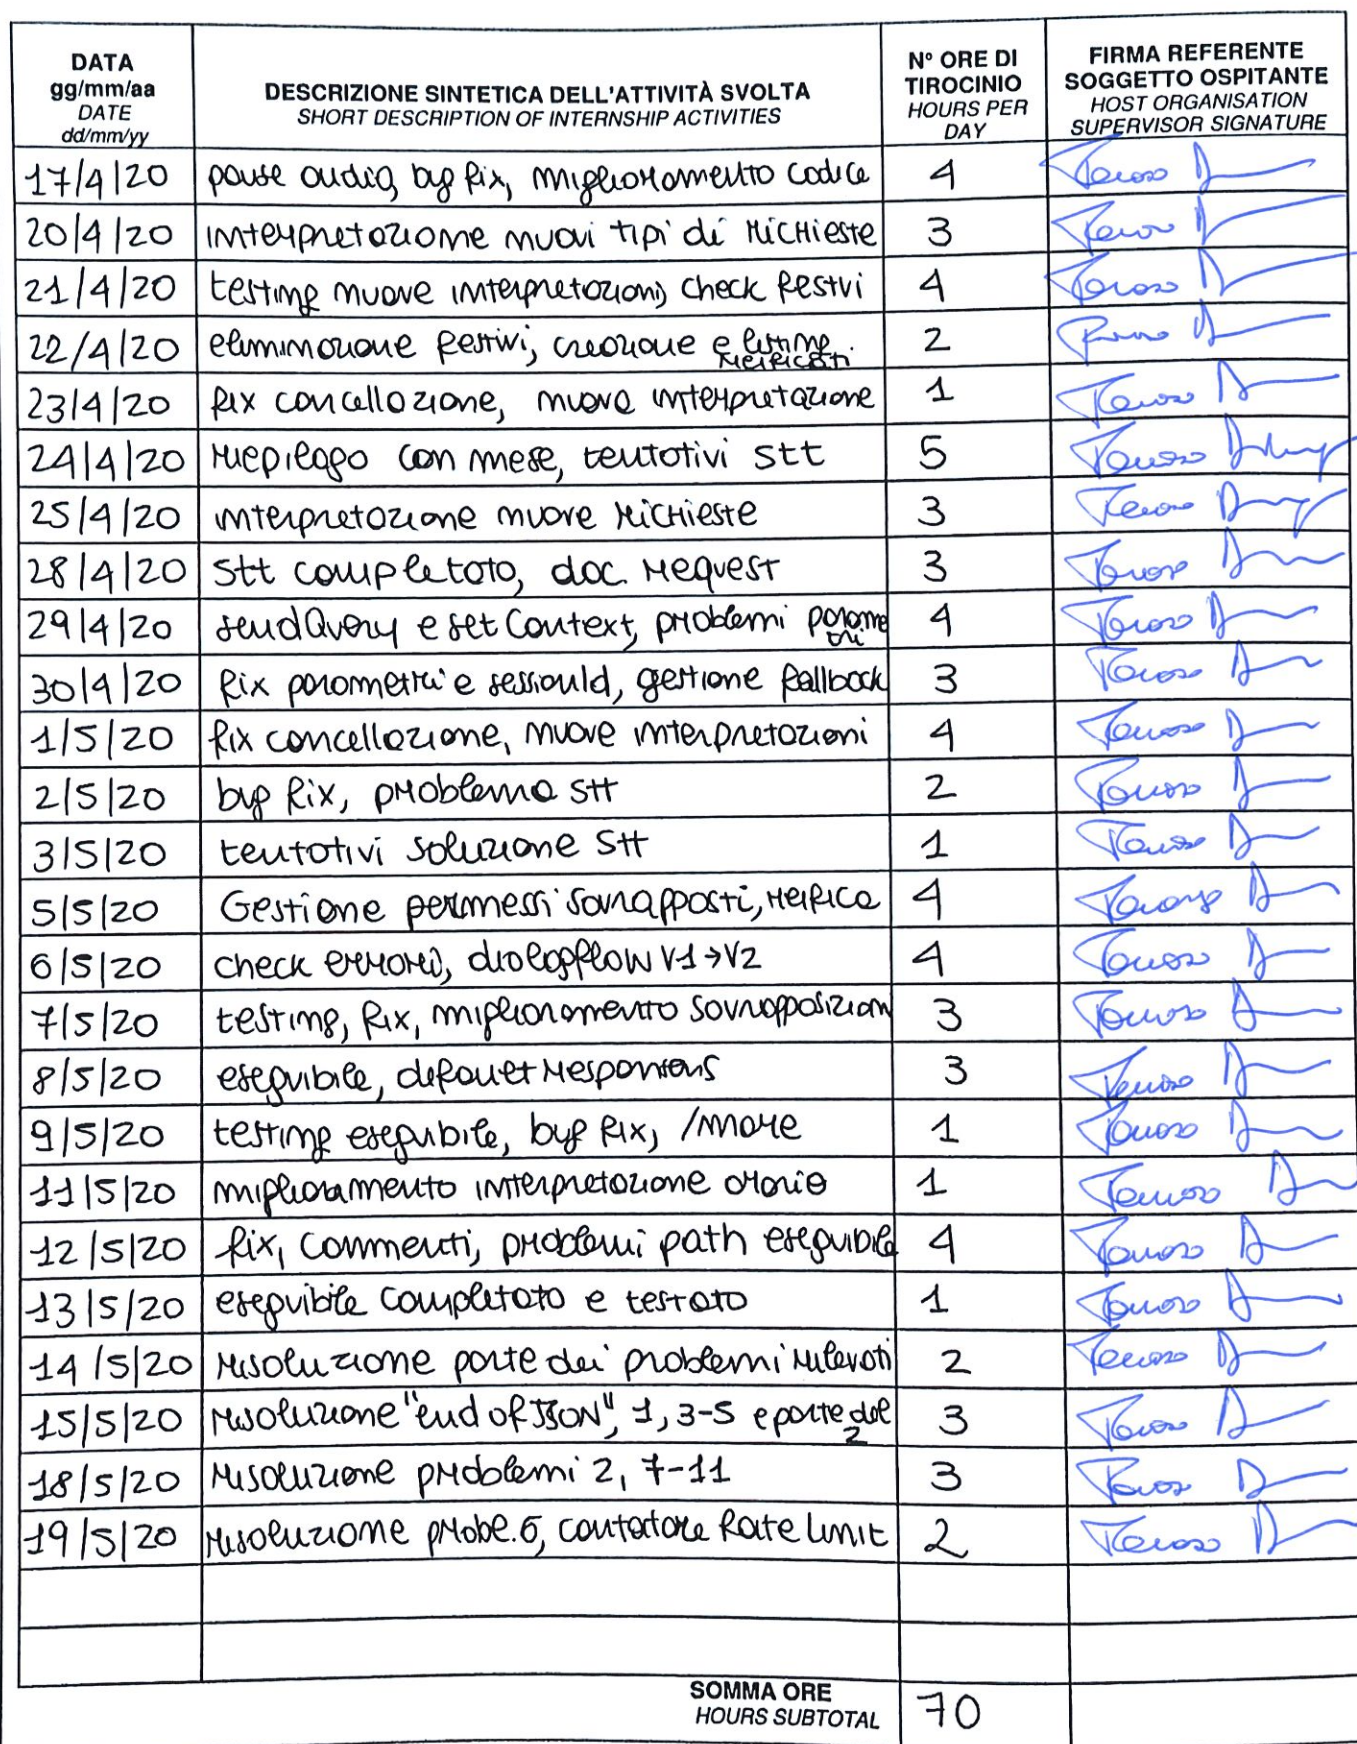 DATA
gg/mm/aa
DATE
dd/mm/yy
DESCRIZIONE SINTETICA DELL'ATTIVITÀ SVOLTA
SHORT DESCRIPTION OF INTERNSHIP ACTIVITIES
N° ORE DI
TIROCINIO
HOURS PER
DAY
FIRMA REFERENTE
SOGGETTO OSPITANTE
HOST ORGANISATION
SUPERVISOR SIGNATURE
17/4/20 pause audio, bug fix, miglioramento codice 4
20/4/20 interpretazione nuovi tipi di richieste 3
21/4/20 testing nuove interpretazioni, check festivi 4
22/4/20 eliminazione festivi, creazione e listing 2
23/4/20 fix cancellazione, nuova interpretazione 1
24/4/20 riepilogo con mese, tentativi stt 5
25/4/20 interpretazione nuove richieste 3
28/4/20 stt completato, doc. request 3
29/4/20 sendQuery e setContext, problemi parame 4
tri
30/4/20 fix parametri e sessionId, gestione fallback 3
1/5/20 fix cancellazione, nuove interpretazioni 4
2/5/20 bug fix, problema stt 2
3/5/20 tentativi soluzione stt 1
5/5/20 Gestione permessi sovrapposti, verifica 4
6/5/20 check errori, dialogflow V1→V2 4
7/5/20 testing, fix, miglioramento sovrapposizioni 3
8/5/20 eseguibile, default responses 3
9/5/20 testing eseguibile, bug fix, /more 1
11/5/20 miglioramento interpretazione orario 1
12/5/20 fix, commenti, problemi path eseguibile 4
13/5/20 eseguibile completato e testato 1
14/5/20 risoluzione parte dei problemi rilevati 2
15/5/20 risoluzione "end of JSON", 1, 3-5 e parte del 3
2
18/5/20 risoluzione problemi 2, 7-11 3
19/5/20 risoluzione probl. 6, contatore Rate limit 2
SOMMA ORE 70
HOURS SUBTOTAL